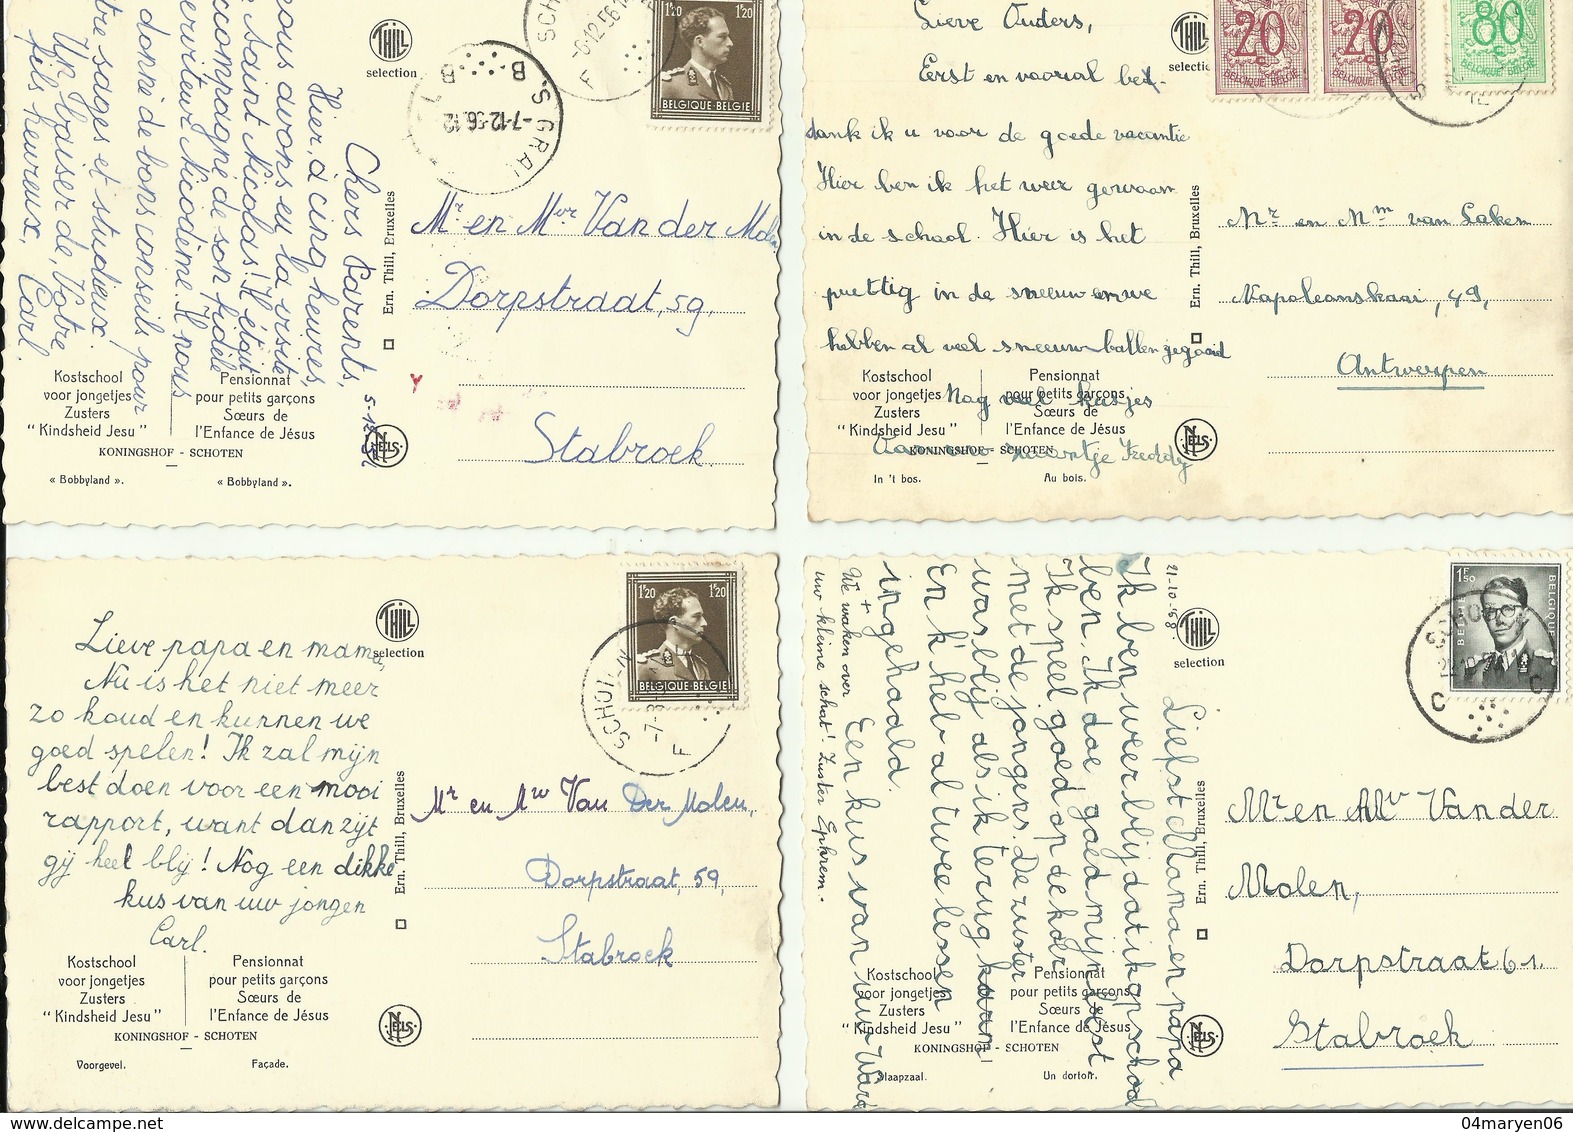 Chers Parents,
Hier, à cinq heures,
nous avons eu la visite
saint Nicolas! Il était
accompagné de son fidèle
serviteur Nicodème. Il nous
donné de bons conseils pour
être sages et studieux.
Un baiser de Votre
fils heureux,
Carl.
THILL
selection
Ern. Thill, Bruxelles
SCH
-6.12.56
F
1F20
1F20
BELGIQUE-BELGIE
B
-7-12-56.12
B
Mr en Mvr Van der Molen
Dorpstraat, 59,
Stabroek.
Kostschool
voor jongetjes
Zusters
" Kindsheid Jesu "
Pensionnat
pour petits garçons
Sœurs de
l'Enfance de Jésus
KONINGSHOF - SCHOTEN
« Bobbyland ».
« Bobbyland ».
NELS
Lieve Ouders,
Eerst en vooral bed-
dank ik u voor de goede vacantie
Hier ben ik het weer gewoon
in de school. Hier is het
prettig in de sneeuw en we
hebben al veel sneeuwballen gegooid
Nog veel kusjes
zoontje Freddy
THILL
selectio
Ern. Thill, Bruxelles
20
c
BELGIQUE BELGIË
20
c
BELGIQUE BELGIË
80
c
BELGIQUE BELGIË
Mr en Mm van Laken
Napoleonskaai, 49,
Antwerpen
Kostschool
voor jongetjes
Zusters
" Kindsheid Jesu "
Pensionnat
pour petits garçons
Sœurs de
l'Enfance de Jésus
KONINGSHOF - SCHOTEN
In 't bos.
Au bois.
NELS
Lieve papa en mama,
Nu is het niet meer
zo koud en kunnen we
goed spelen! Ik zal mijn
best doen voor een mooi
rapport, want dan zijt
gij heel blij! Nog een dikke
kus van uw jongen
Carl.
THILL
selection
Ern. Thill, Bruxelles
1F20
1F20
BELGIQUE-BELGIE
SCHOTEN
F
Mr en Mw Van Der Molen,
Dorpstraat, 59,
Stabroek
Kostschool
voor jongetjes
Zusters
" Kindsheid Jesu "
Pensionnat
pour petits garçons
Sœurs de
l'Enfance de Jésus
KONINGSHOF - SCHOTEN
Voorgevel.
Façade.
NELS
21-10-58
Liefst Mama en papa
Ik ben weer blij dat ik op school
ben. Ik doe goed mijn best
Ik speel goed op de koer
met de jongens. De zuster
was blij als ik terug kwam!
En 'k heb al twee lessen
ingehaald.
Een kus van uw Ward
+
We waken over
uw kleine schat! Zuster Ephrem.
THILL
selection
Ern. Thill, Bruxelles
1F50
BELGIE
BELGIQUE
C
C
Mr en Mv Van der
Molen,
Dorpstraat 61.
Stabroek
Kostschool
voor jongetjes
Zusters
" Kindsheid Jesu "
Pensionnat
pour petits garçons
Sœurs de
l'Enfance de Jésus
KONINGSHOF - SCHOTEN
Slaapzaal.
Un dortoir.
NELS
www.delcampe.net
04maryen06